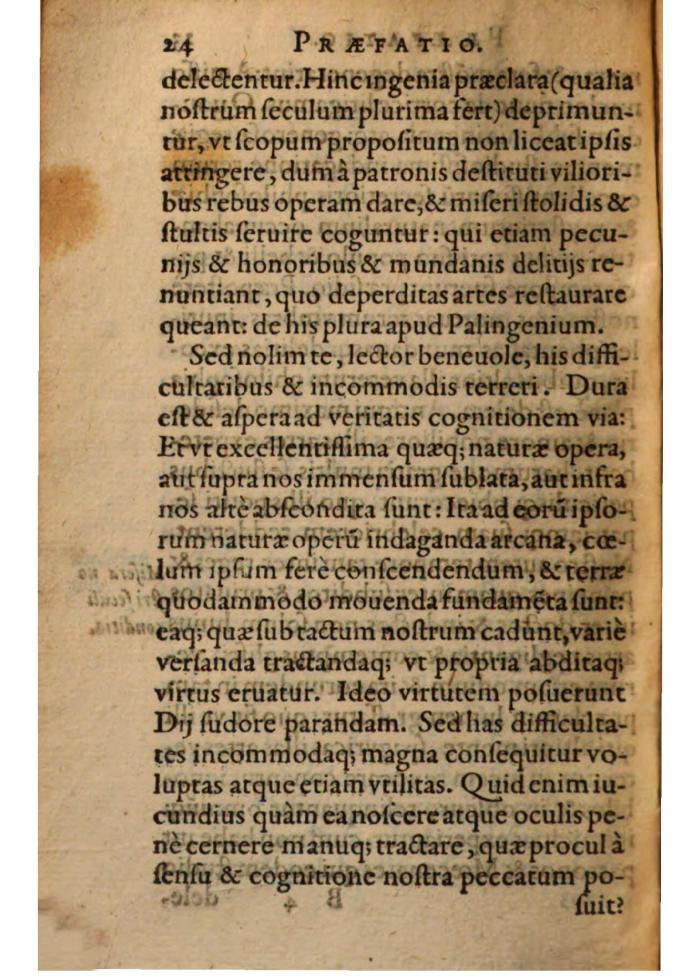 24 PRÆFATIO.
delectentur. Hinc ingenia præclara (qualia
noſtrum ſeculum plurima fert) deprimun-
tur, vt ſcopum propoſitum non liceat ipſis
attingere, dum à patronis deſtituti viliori-
bus rebus operam dare, & miſeri ſtolidis &
ſtultis ſeruire coguntur: qui etiam pecu-
nijs & honoribus & mundanis delitijs re-
nuntiant, quo deperditas artes reſtaurare
queant: de his plura apud Palingenium.
Sed nolim te, lector beneuole, his diffi-
cultatibus & incommodis terreri. Dura
eſt & aſpera ad veritatis cognitionem via:
Et vt excellentiſſima quæq; naturæ opera,
aut ſupra nos immenſum ſublata, aut infra
nos altè abſcondita ſunt: Ita ad eorū ipſo-
rum naturæ operū indaganda arcana, cœ-
lum ipſum ferè conſcendendum, & terræ
quodammodo mouenda fundamēta ſunt:
eaq; quæ ſub tactum noſtrum cadunt, variè
verſanda tractandaq; vt propria abditaq;
virtus eruatur. Ideo virtutem poſuerunt
Dij ſudore parandam. Sed has difficulta-
tes incommodaq; magna conſequitur vo-
luptas atque etiam vtilitas. Quid enim iu-
cundius quàm ea noſcere atque oculis pe-
nè cernere manuq; tractare, quæ procul à
ſenſu & cognitione noſtra peccatum po-
ſuit?